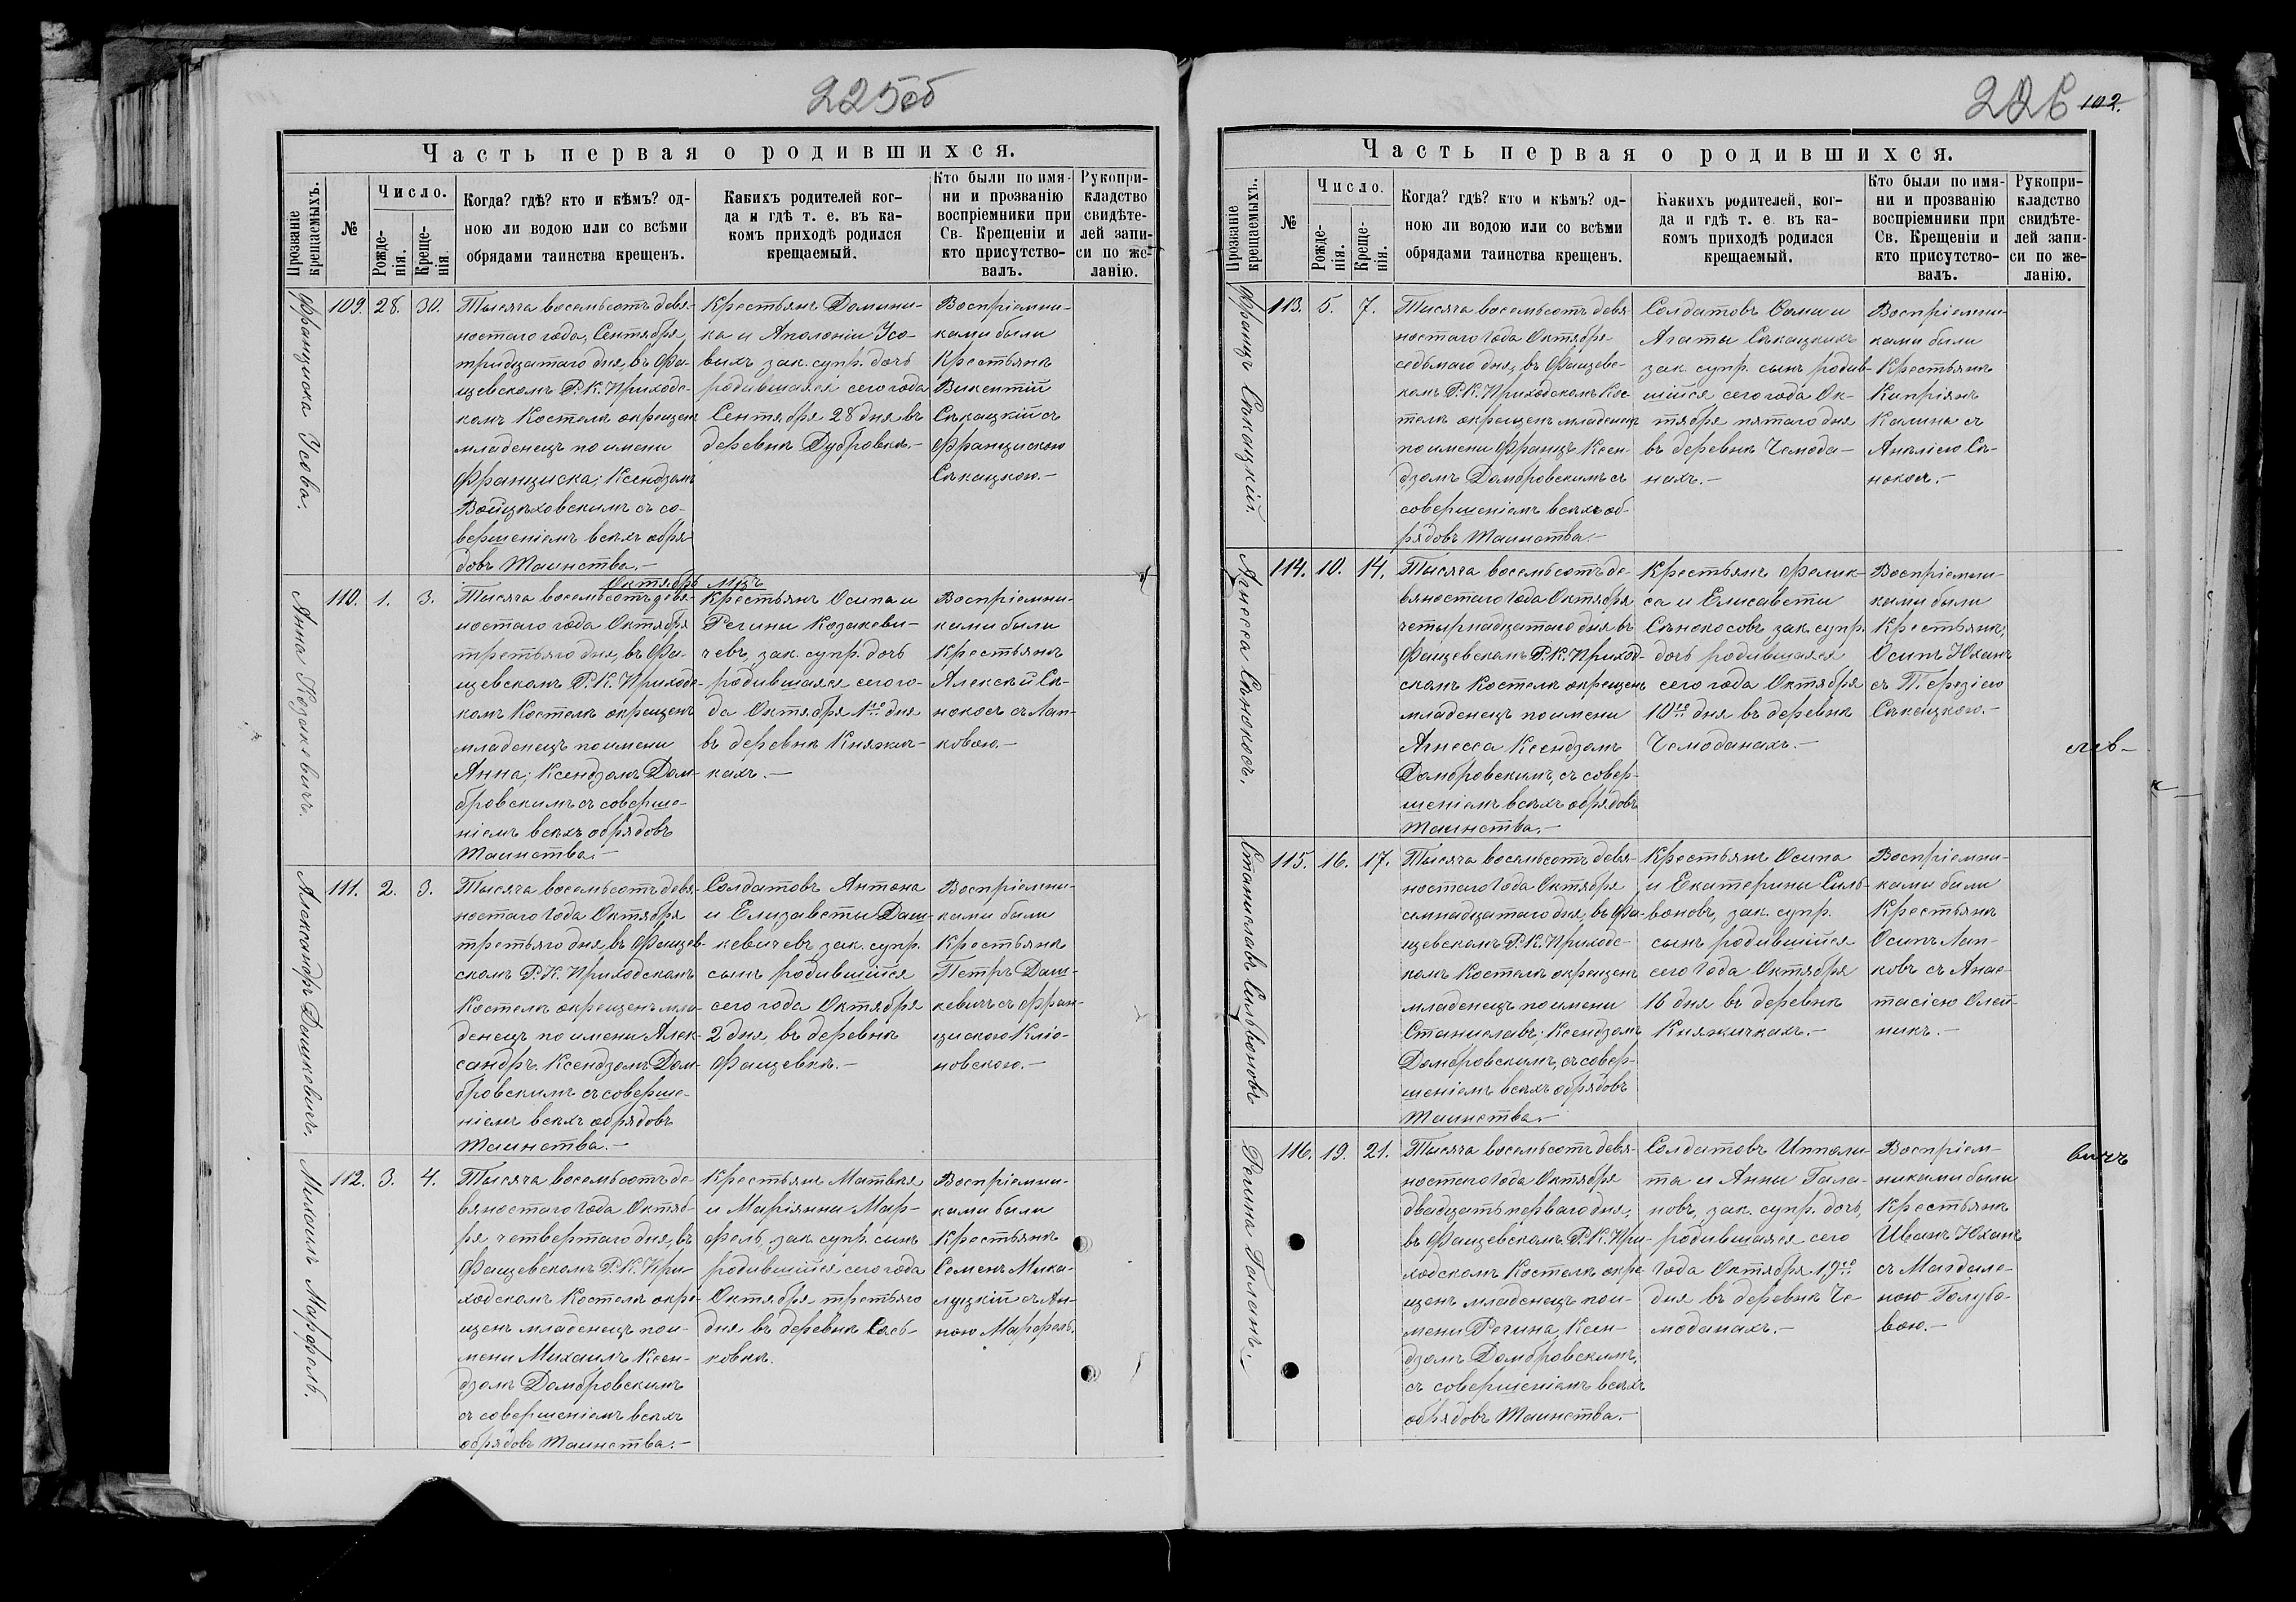 225об
Часть первая о родившихся.
Прозваніе крещаемыхъ.
№
Число.
Рожде-
нія.
Креще-
нія.
Когда? гдѣ? кто и кѣмъ? од-
ною ли водою или со всѣми
обрядами таинства крещенъ.
Каких​ъ родителей ког-
да и гдѣ т. е. въ ка-
комъ приходѣ родился
крещаемый.
Кто были по имя-
ни и прозванію
воспріемники при
Св. Крещеніи и
кто присутство-
валъ.
Рукопри-
кладство
свидѣте-
лей запи-
си по же-
ланію.
Франциска Усова.
109. 28. 30.
Тысяча восемьсотъ девя-
ностаго года, Сентября
тридцатаго дня, въ Фа-
щевскомъ Р. К. Приходс-
комъ Костелѣ окрещенъ
младенецъ по имени
Франциска; Ксендзомъ
Войцѣховскимъ съ со-
вершеніемъ всѣхъ обря-
довъ Таинства.-
Крестьянъ Домини-
ка и Аполоніи Усо-
выхъ зак. супр. дочь
родившаяся сего года
Сентября 28 дня въ
деревнѣ Дубровкѣ.-
Воспріемни-
ками были
Крестьянѣ
Викентій
Сѣкацкій съ
Францискою
Сѣкацкою.-
Октябрь мѣц​ъ
Анна Козакевичъ.
110. 1. 3.
Тысяча восемьсотъ девя-
ностаго года Октября
третьяго дня, въ Фа-
щевскомъ Р. К. Приходс-
комъ Костелѣ окрещенъ
младенецъ по имени
Анна; Ксендзомъ Дом-
бровскимъ съ соверше-
ніемъ всѣхъ обрядовъ
Таинства.-
Крестьянъ Осипа и
Регины Козакеви-
чевъ, зак. супр. дочь
родившаяся сего го-
да Октября 1го дня
въ деревнѣ Княжич-
кахъ.-
Воспріемни-
ками были
Крестьянѣ
Алексѣй Сѣ-
нокосъ съ Лап-
ковою.-
Александръ Дашкевичъ.
111. 2. 3.
Тысяча восемьсотъ девя-
ностаго года Октября
третьяго дня, въ Фащев-
скомъ Р. К. Приходскомъ
Костелѣ окрещенъ мла-
денецъ по имени Алек-
сандръ Ксендзомъ Дом-
бровскимъ съ соверше-
ніемъ всѣхъ обрядовъ
Таинства.-
Солдатовъ Антона
и Елизаветы Даш-
кевичевъ зак. супр.
сынъ родившійся
сего года Октября
2 дня, въ деревнѣ
Фащевкѣ.-
Воспріемни-
ками были
Крестьянѣ
Петръ Даш-
кевичъ съ Фран-
цискою Кліо-
новскою.-
Михаилъ Марфель.
112. 3. 4.
Тысяча восемьсотъ де-
вяностаго года Октяб-
ря четвертаго дня, въ
Фащевскомъ Р. К. При-
ходскомъ Костелѣ окре-
щенъ младенецъ по и-
мени Михаилъ Ксен-
дзомъ Домбровскимъ
съ совершеніемъ всѣхъ
обрядовъ Таинства.-
Крестьянъ Матвѣя
и Маріянны Мар-
фель, зак. супр. сынъ
родившійся сего года
Октября третьяго
дня въ деревнѣ Сась-
ковкѣ.
Воспріемни-
ками были
Крестьянѣ
Семенъ Мика-
луцкій съ Ан-
ною Марфель.
226 102.
Часть первая о родившихся.
Прозваніе крещаемыхъ.
№
Число.
Рожде-
нія.
Креще-
нія.
Когда? гдѣ? кто и кѣмъ? од-
ною ли водою или со всѣми
обрядами таинства крещенъ.
Какихъ родителей, ког-
да и гдѣ т. е. въ ка-
комъ приходѣ родился
крещаемый.
Кто были по имя-
ни и прозванію
воспріемники при
Св. Крещеніи и
кто присутство-
валъ.
Рукопри-
кладство
свидѣте-
лей запи-
си по же-
ланію.
Францъ Сѣкацкій
113. 5. 7.
Тысяча восемьсотъ девя-
ностаго года Октября
седьмаго дня, въ Фащевс-
комъ Р. К. Приходскомъ Кос-
телѣ окрещенъ младенецъ
по имени Францъ Ксен-
дзомъ Домбровскимъ съ
совершеніемъ всѣхъ об-
рядовъ Таинства.-
Солдатовъ Фомы и
Агаты Сѣкацкихъ
зак. супр. сынъ родив-
шійся сего года Ок-
тября пятаго дня
въ деревнѣ Чемода-
нахъ.-
Воспріемни-
ками были
Крестьянѣ
Кипріянъ
Калина съ
Анѣліею Сѣ-
нокосъ.-
Агнесса Сѣнокосъ.
114. 10. 14.
Тысяча восемьсотъ де-
вяностаго года Октября
четырнадцатаго дня въ
Фащевскомъ Р. К. Приход-
скомъ Костелѣ окрещенъ
младенецъ по имени
Агнесса Ксендзомъ
Домбровскимъ, съ совер-
шеніемъ всѣхъ обрядовъ
Таинства.-
Крестьянъ Фелик-
са и Елисаветы
Сѣнокосовъ зак. супр.
дочь родившаяся
сего года Октября
10го дня въ деревнѣ
Чемоданахъ.-
Воспріемни-
ками были
Крестьянѣ,
Осипъ Юханъ
съ Терезіею
Сѣкацкою.-
Станиславъ Сильвоновъ
115. 16. 17.
Тысяча восемьсотъ девя-
ностаго года Октября
семнадцатаго дня, въ Фа-
щевскомъ Р. К. Приходс-
комъ Костелѣ окрещенъ
младенецъ по имени
Станиславъ; Ксендзомъ
Домбровскимъ, съ совер-
шеніемъ всѣхъ обрядовъ
Таинства.-
Крестьянъ Осипа
и Екатерины Силь-
воновъ, зак. супр.
сынъ родившійся
сего года Октября
16 дня въ деревнѣ
Княжичкахъ.-
Воспріемни-
ками были
Крестьянѣ
Осипъ Лап-
ковъ съ Анас-
тасіею Олей-
никъ.-
Регина Галенъ.
116. 19. 21.
Тысяча восемьсотъ девя-
ностаго года Октября
двадцать перваго дня,
въ Фащевскомъ Р. К. При-
ходскомъ Костелѣ окре-
щенъ младенецъ по и-
мени Регина, Ксен-
дзомъ Домбровскимъ,
съ совершеніемъ всѣхъ
обрядовъ Таинства.-
Солдатовъ Ипполи-
та и Анны Гала-
новъ, зак. супр. дочь,
родившаяся сего
года Октября 19го
дня въ деревнѣ Че-
моданахъ.-
Воспріем-
никами были
Крестьянѣ
Иванъ Юханъ
съ Магдале-
ною Голубо-
вою.-
вичъ